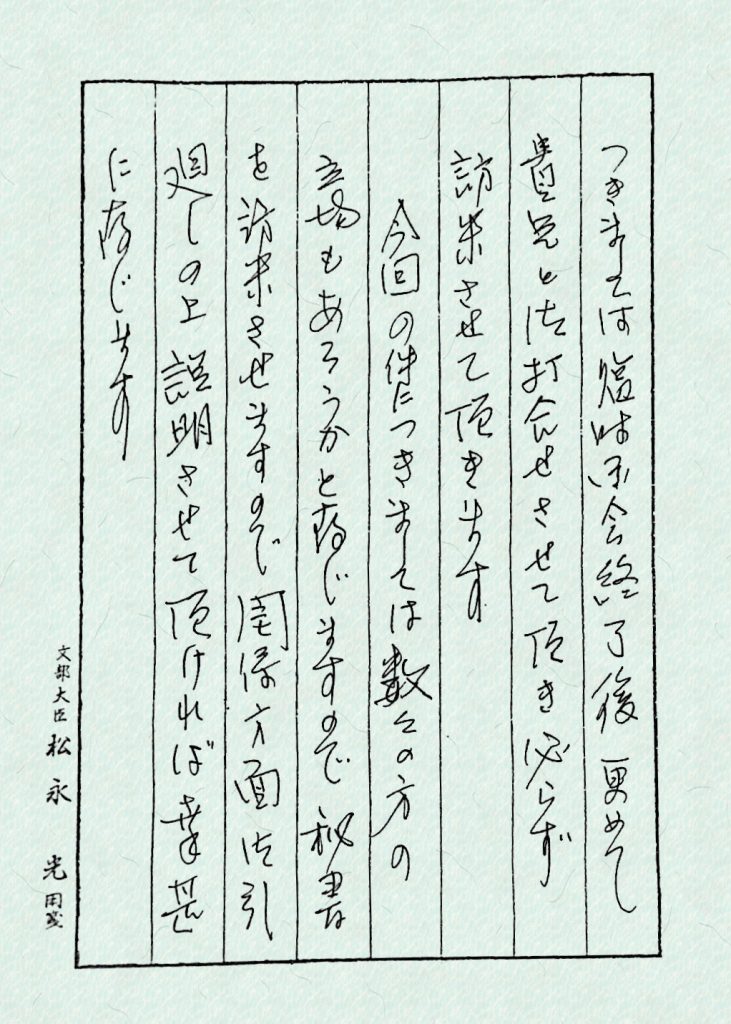 つきましては臨時国会終了後更めて
貴兄と御打合せさせて頂き必らず
訪米させて頂きます
今回の件につきましては数々の方の
立場もあろうかと存じますので秘書
を訪米させますので関係方面御引
廻しの上説明させて頂ければ幸甚
に存じます
文部大臣 松永 光用箋